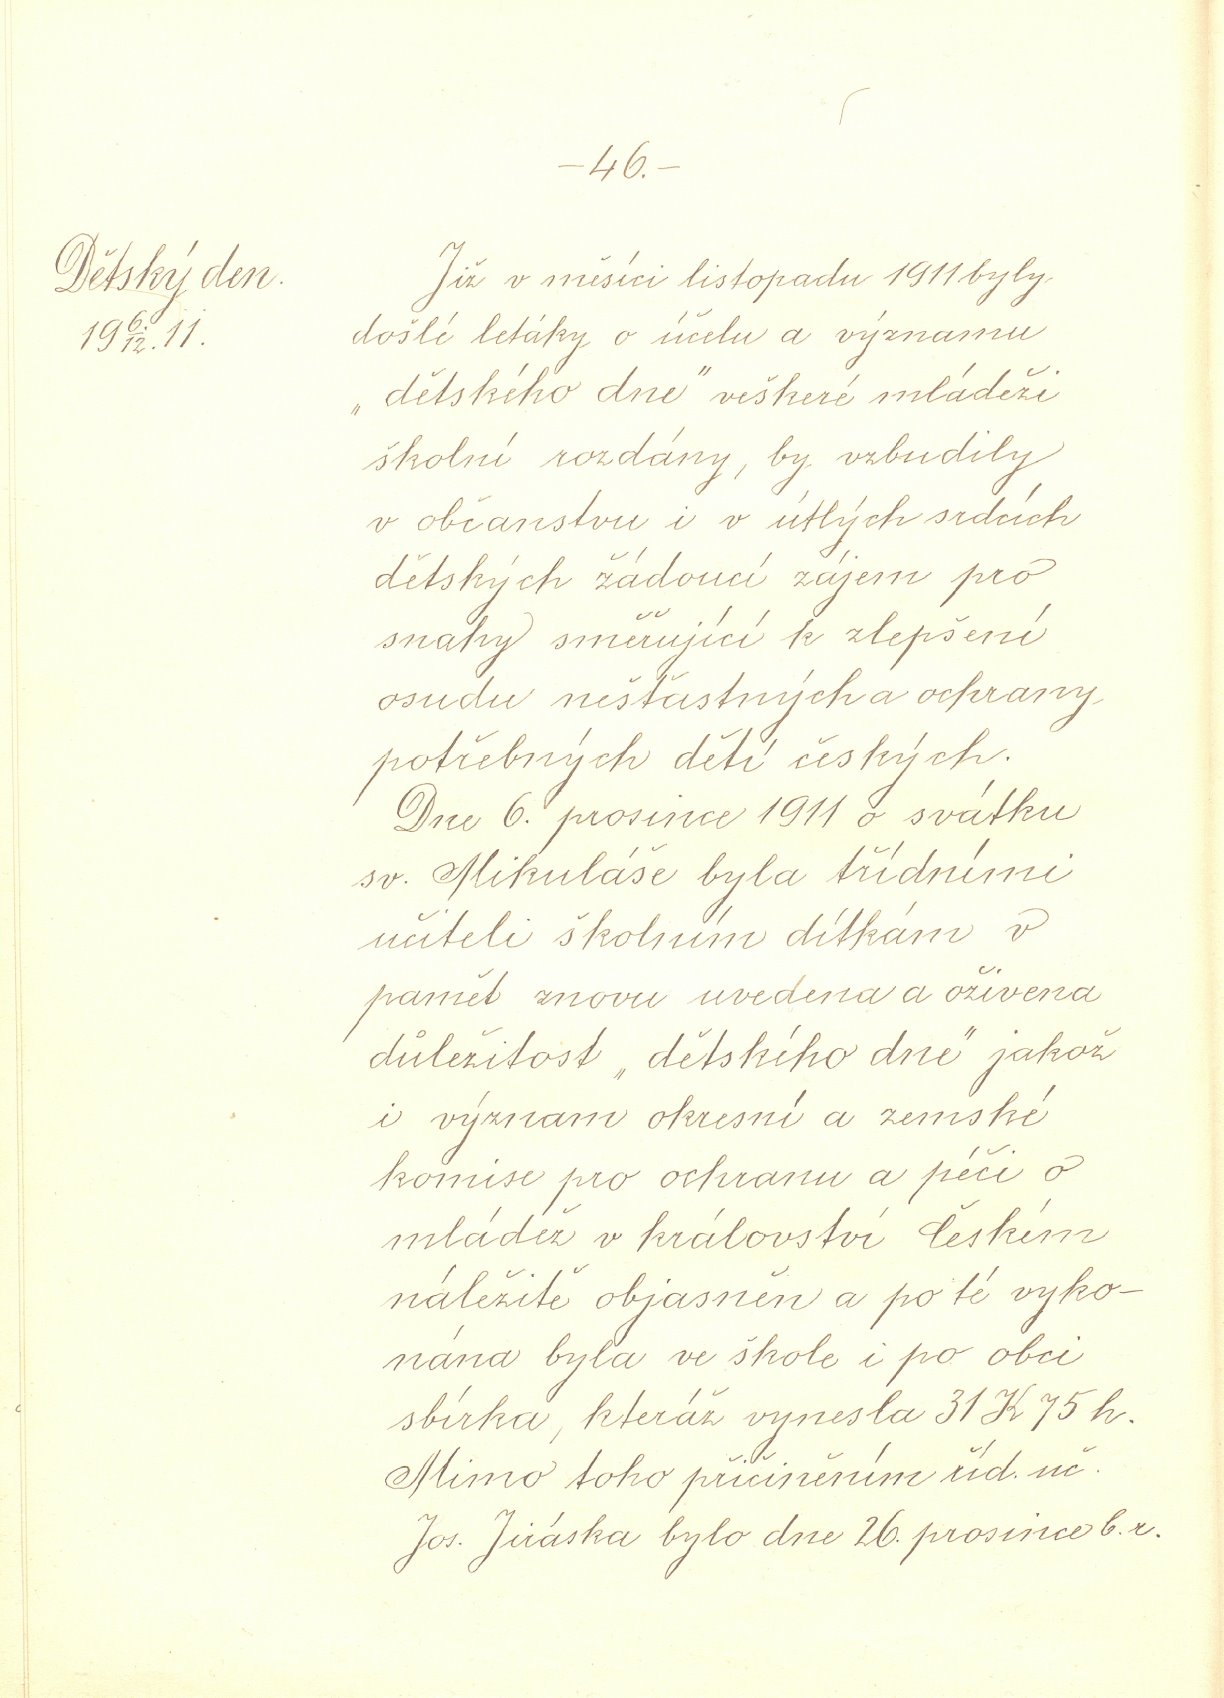 –46.–
Dětský den.
19 6./12. 11.
Již v měsíci listopadu 1911 byly
došlé letáky o účelu a významu
„dětského dne" veškeré mládeži
školní rozdány, by vzbudily
v občanstvu i v útlých srdcích
dětských žádoucí zájem pro
snahy směřující k zlepšení
osudu nešťastných a ochrany
potřebných dětí českých.
Dne 6. prosince 1911 o svátku
sv. Mikuláše byla třídními
učiteli školním dítkám v
pamět znovu uvedena a oživena
důležitost „dětského dne" jakož
i význam okresní a zemské
komise pro ochranu a péči o
mládež v království Českém
náležitě objasněn a po té vyko-
nána byla ve škole i po obci
sbírka, kteráž vynesla 31 K 75 h.
Mimo toho přičiněním říd. uč.
Jos. Jiráska bylo dne 26. prosince b. r.